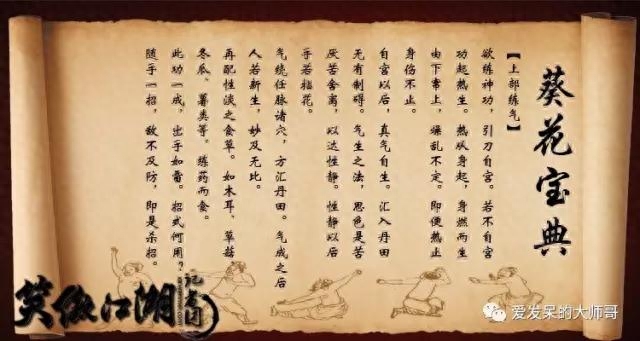 葵花宝典
【上部练气】
欲练神功，引刀自宫。若不自宫
功起热生。热从身起，身燃而生
由下窜上，燥乱不定。即便热止
身伤不止。
自宫以后，真气自生。汇入丹田
无有制碍。气生之法，思色是苦
厌苦舍离，以达性静。性静以后
手若拈花。
气绕任脉诸穴，方汇丹田。气成之后
人若新生，妙及无比。
再配性淡之食草。如木耳、草菇
冬瓜、薯类等，练药而食。
此功一成，出手如雷。招式何用，
随手一招，敌不及防，即是杀招。
笑傲江湖
记者团
爱发呆的大师哥